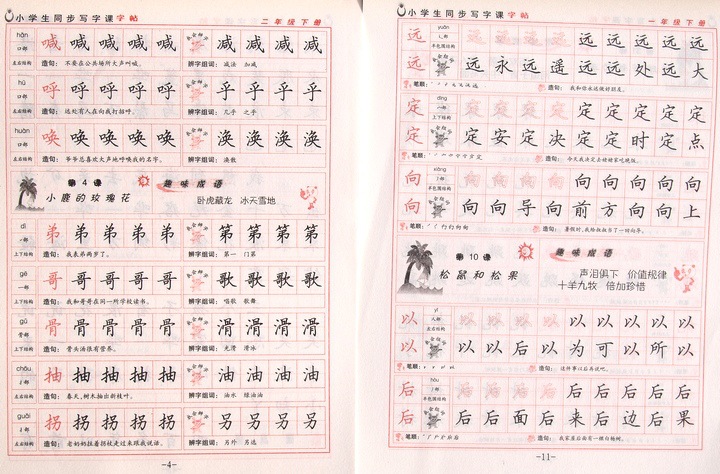 小学生同步写字课字帖 二年级下册
hǎn 喊 喊 喊 喊 减 减 减 减
口部
左右结构 造句：不要在公共场所大声叫喊。 辨字组词：减法 加减
hū 呼 呼 呼 呼 乎 乎 乎 乎
口部
左右结构 造句：远处有人在向我打招呼。 辨字组词：几乎 之乎
huàn 唤 唤 唤 唤 涣 涣 涣 涣
口部
左右结构 造句：爷爷总喜欢大声地呼唤我的名字。 辨字组词：涣散
第4课 趣味成语
小鹿的玫瑰花 卧虎藏龙 冰天雪地
dì 弟 弟 弟 弟 第 第 第 第
上下结构 造句：我表弟两岁了。 辨字组词：第一 第二
gē 哥 哥 哥 哥 歌 歌 歌 歌
一部
上下结构 造句：我和哥哥在同一所学校读书。 辨字组词：唱歌 歌舞
gǔ 骨 骨 骨 骨 滑 滑 滑 滑
骨部
上下结构 造句：骨头汤很有营养。 辨字组词：光滑 滑冰
chōu 抽 抽 抽 抽 油 油 油 油
扌部
左右结构 造句：春天，树木抽出新枝叶。 辨字组词：油水 绿油油
guǎi 拐 拐 拐 拐 另 另 另 另
扌部
左右结构 造句：老奶奶拄着拐杖走过来跟我说话。 辨字组词：另外 另选
-4-
小学生同步写字课字帖 一年级下册
yuǎn 远 远 远 远 远 远 远 远
辶部
半包围结构
远 远 永 远 遥 远 远 处 远 大
笔顺： 造句：我和你永远做好朋友。
dìng 定 定 定 定 定 定 定 定
宀部
上下结构
定 定 安 定 决 定 定 时 定 点
笔顺： 造句：今天我决定去姥姥家吃晚饭。
xiàng 向 向 向 向 向 向 向 向
半包围结构
向 向 导 向 前 方 向 向 上
笔顺： 造句：暑假时，我给叔叔当了一回向导。
第10课 趣味成语
松鼠和松果 声泪俱下 价值规律
十羊九牧 倍加珍惜
yǐ 以 以 以 以 以 以 以 以
人部
左右结构
以 以 后 以 为 可 以 所 以
笔顺： 造句：这件事以后再说吧。
hòu 后 后 后 后 后 后 后 后
半包围结构
后 后 后 面 后 来 后 边 后 果
笔顺： 造句：我家屋后面有一棵白杨树。
-11-